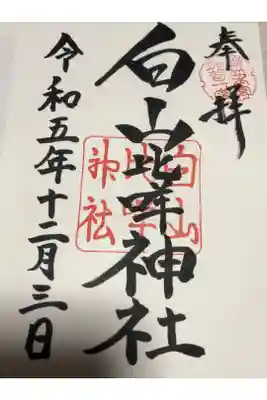 奉拝
白山比咩神社
白山
比咩
神社
令和五年十二月三日